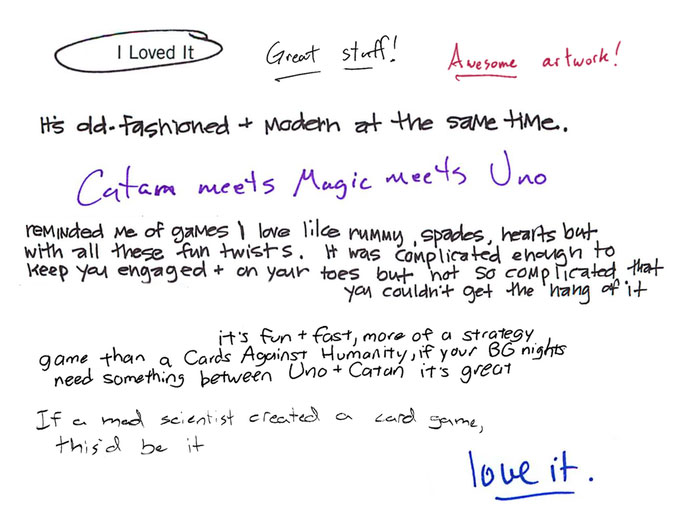 I Loved It
Great stuff!
Awesome artwork!
It's old-fashioned + modern at the same time.
Catan meets Magic meets Uno
reminded me of games I love like rummy, spades, hearts but
with all these fun twists. It was complicated enough to
keep you engaged + on your toes but not so complicated that
you couldn't get the hang of it
it's fun + fast, more of a strategy
game than a Cards Against Humanity, if your BG nights
need something between Uno + Catan it's great
If a mad scientist created a card game,
this'd be it
love it.